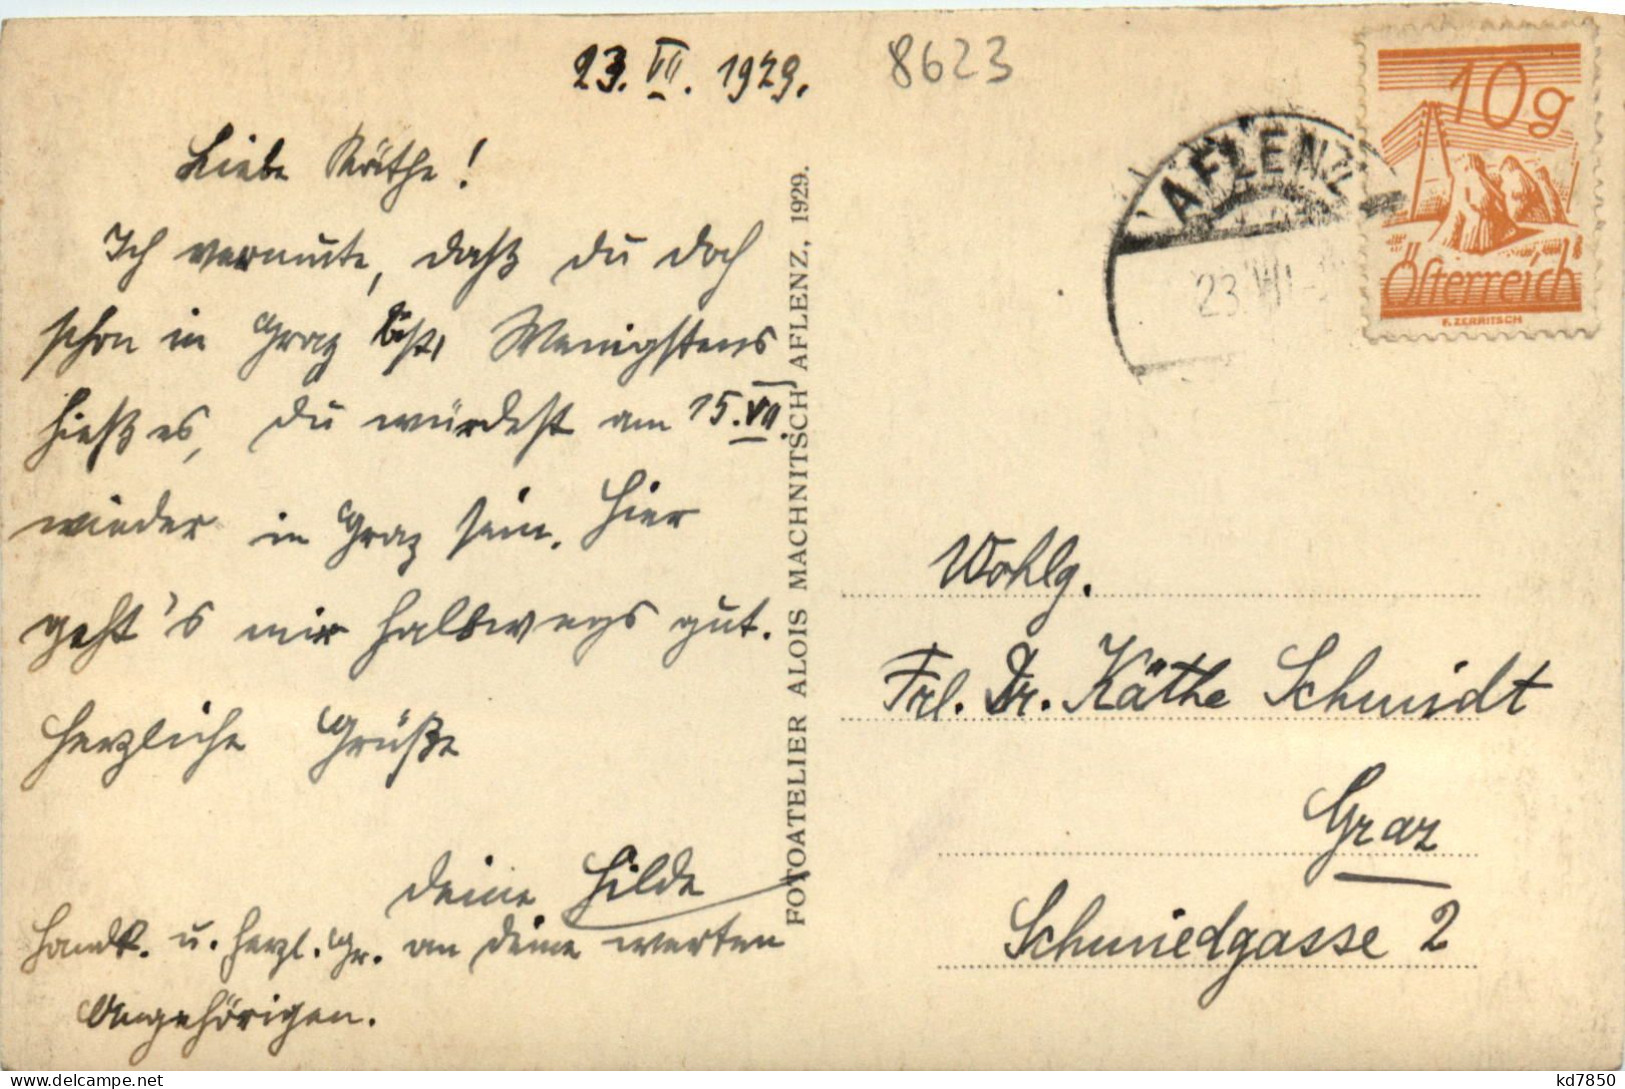 23. VII. 1929.
8623
Liebe Käthe!
Ich vermute, daß du doch
schon in Graz bist. Wenigstens
hieß es, du würdest am 15. VII.
wieder in Graz sein. Hier
geht's mir halbwegs gut.
Herzliche Grüße
deine Hilde
Handk. u. herzl. Gr. an deine werten
Angehörigen.
FOTOATELIER ALOIS MACHNITSCH AFLENZ, 1929.
AFLENZ
23. VII
10g
Österreich
F. ZERRITSCH
Wohlg.
Frl. Dr. Käthe Schmidt
Graz
Schmiedgasse 2
kd7850